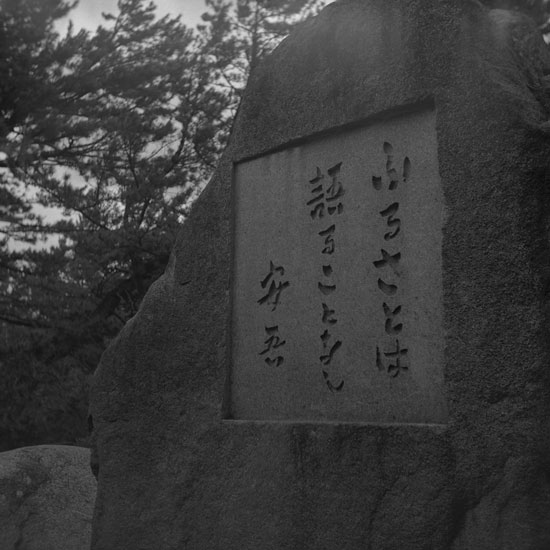 ふるさとは
語ることなし
安吾